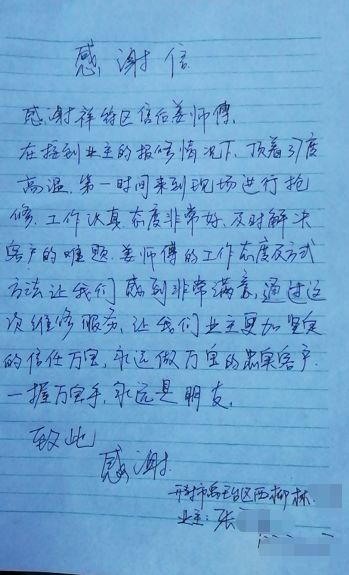 感谢信
感谢祥符区售后姜师傅,
在接到业主的报修情况下、顶着37度
高温、第一时间来到现场进行抢
修、工作认真态度非常好、及时解决
客户的难题、姜师傅的工作态度及方式
方法让我们感到非常满意,通过这
次维修服务、让我们业主更加坚定
的信任万宝,永远做万宝的忠实客户.
一握万宝手,永远是朋友,
致此
感谢.
开封市禹王台区西柳林
业主:张